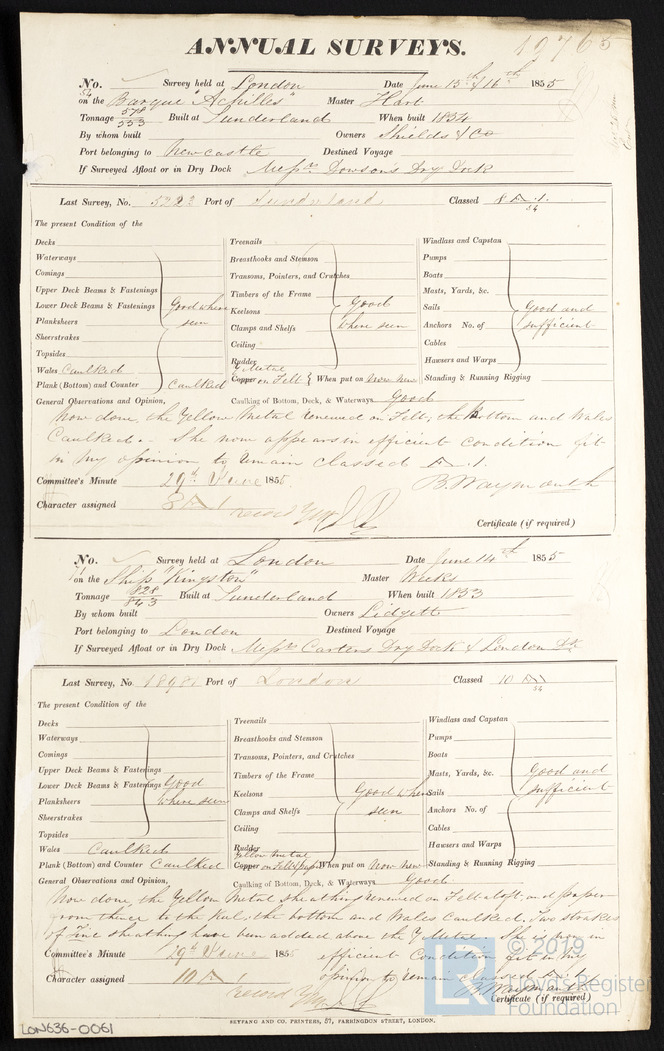 ANNUAL SURVEYS. 19765
No. Survey held at London Date June 15th & 16th 1855
54
on the Barque "Achilles" Master Hart
Tonnage 578/553 Built at Sunderland When built 1834
By whom built Owners Shields & Co
Port belonging to Newcastle Destined Voyage
If Surveyed Afloat or in Dry Dock Messrs Dowson's Dry Dock
Last Survey, No. 5223 Port of Sunderland Classed 8 A 1.
54
The present Condition of the
Decks Treenails Windlass and Capstan
Waterways Breasthooks and Stemson Pumps
Comings Transoms, Pointers, and Crutches Boats
Upper Deck Beams & Fastenings Timbers of the Frame Masts, Yards, &c.
Lower Deck Beams & Fastenings Good where Keelsons Good Sails Good and
Planksheers seen Clamps and Shelfs where seen Anchors No. of sufficient
Sheerstrakes Ceiling Cables
Topsides Rudder Hawsers and Warps
Wales Caulked Y Metal
Plank (Bottom) and Counter Caulked Copper on Felt { When put on Now new Standing & Running Rigging
General Observations and Opinion, Caulking of Bottom, Deck, & Waterways Good
Now done, the Yellow Metal renewed on Felt, the Bottom and Wales
Caulked. She now appears in efficient condition fit
in my opinion to remain classed A 1.
Committee's Minute 29th June 1855. B. Waymouth
Character assigned 8 A 1
Certificate (if required)
No. Survey held at London Date June 14th 1855
on the Ship "Kingston" Master Weeks
Tonnage 828/843 Built at Sunderland When built 1853
By whom built Owners Lidgett
Port belonging to London Destined Voyage
If Surveyed Afloat or in Dry Dock Messrs Carters Dry Dock & London Dk
Last Survey, No. 18981 Port of London Classed 10 A 1
54
The present Condition of the
Decks Treenails Windlass and Capstan
Waterways Breasthooks and Stemson Pumps
Comings Transoms, Pointers, and Crutches Boats
Upper Deck Beams & Fastenings Timbers of the Frame Masts, Yards, &c. Good and
Lower Deck Beams & Fastenings Good Keelsons Good where Sails sufficient
Planksheers where seen Clamps and Shelfs seen Anchors No. of
Sheerstrakes Ceiling Cables
Topsides Rudder Hawsers and Warps
Wales Caulked Yellow Metal
Plank (Bottom) and Counter Caulked Copper on Felt & pap. When put on Now new Standing & Running Rigging
General Observations and Opinion, Caulking of Bottom, Deck, & Waterways Good.
Now done, the Yellow Metal sheathing renewed on Felt aloft, and paper
from thence to the keel, the bottom and Wales Caulked. Two strakes
of Zinc sheathing have been added above the Y Metal. She is now in
Committee's Minute 19th June 1855 efficient Condition fit in my
Character assigned 10 A 1 opinion to remain classed A 1.
B. Waymouth
Certificate (if required)
SEYFANG AND CO. PRINTERS, 57, FARRINGDON STREET, LONDON.
LON636-0061
LR © 2019
Lloyd's Register
Foundation